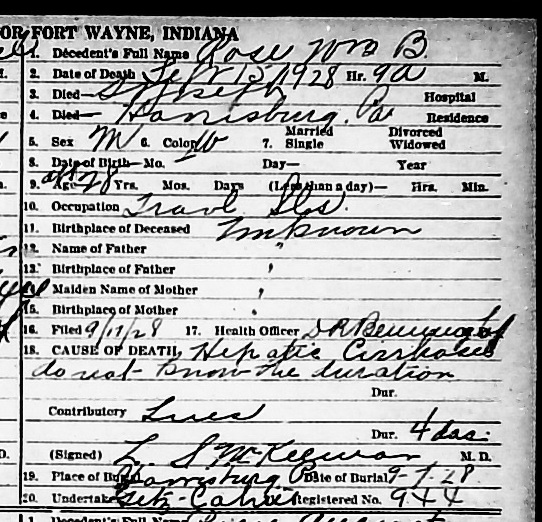 OR FORT WAYNE, INDIANA
1. Decedent's Full Name Rose Wm B.
2. Date of Death Sept 15 1928 Hr. 9 a M.
3. Died— St Joseph Hospital
4. Died— Harrisburg, Pa Residence
5. Sex M 6. Color W 7. Married Single Divorced Widowed
8. Date of Birth—Mo. Day— Year
9. Age 78 Yrs. Mos. Days (Less than a day)— Hrs. Min.
10. Occupation Travl Sls.
11. Birthplace of Deceased Unknown
12. Name of Father "
13. Birthplace of Father '
14. Maiden Name of Mother '
15. Birthplace of Mother '
16. Filed 9/17/28 17. Health Officer D R Benninghoff
18. CAUSE OF DEATH, Hepatic Cirrhosis
do not know the duration
Dur.
Contributory Lues
Dur. 4 das.
(Signed) L S McKeeman M. D.
19. Place of Burial Harrisburg Pa Date of Burial 9- -28
20. Undertaker Getz- Registered No. 944
1. Decedent's Full Name